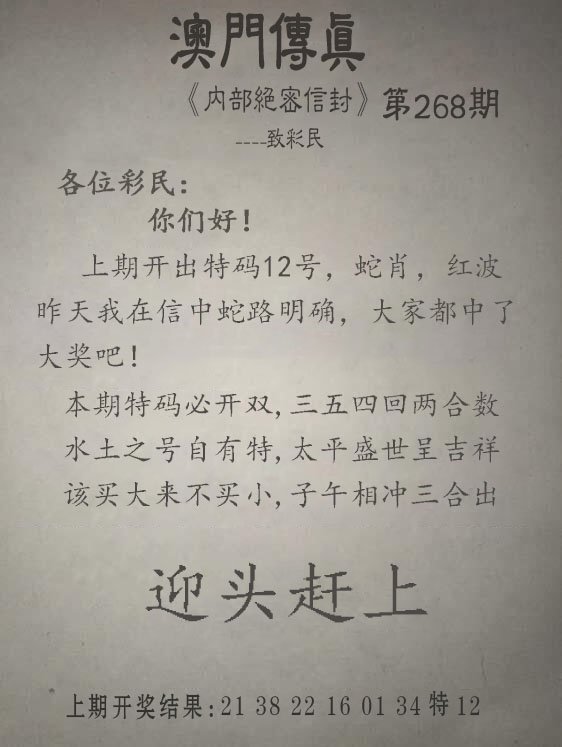 澳門傳眞
《内部絕密信封》第268期
----致彩民
各位彩民:
你们好!
上期开出特码12号，蛇肖，红波
昨天我在信中蛇路明确，大家都中了
大奖吧!
本期特码必开双,三五四回两合数
水土之号自有特,太平盛世呈吉祥
该买大来不买小,子午相冲三合出
迎头赶上
上期开奖结果:21 38 22 16 01 34 特 12